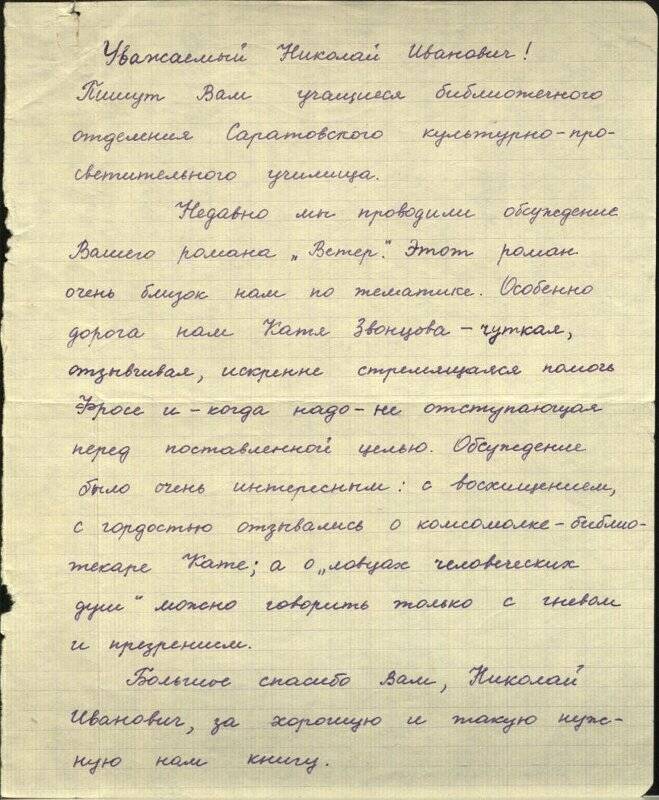 Уважаемый Николай Иванович!
Пишут Вам учащиеся библиотечного
отделения Саратовского культурно-про-
светительного училища.
Недавно мы проводили обсуждение
Вашего романа „Ветер". Этот роман
очень близок нам по тематике. Особенно
дорога нам Катя Звонцова – чуткая,
отзывчивая, искренне стремящаяся помочь
Фросе и – когда надо – не отступающая
перед поставленной целью. Обсуждение
было очень интересным: с восхищением,
с гордостью отзывались о комсомолке-библио-
текаре Кате; а о „ловцах человеческих
душ" можно говорить только с гневом
и презрением.
Большое спасибо Вам, Николай
Иванович, за хорошую и такую нуж-
ную нам книгу.